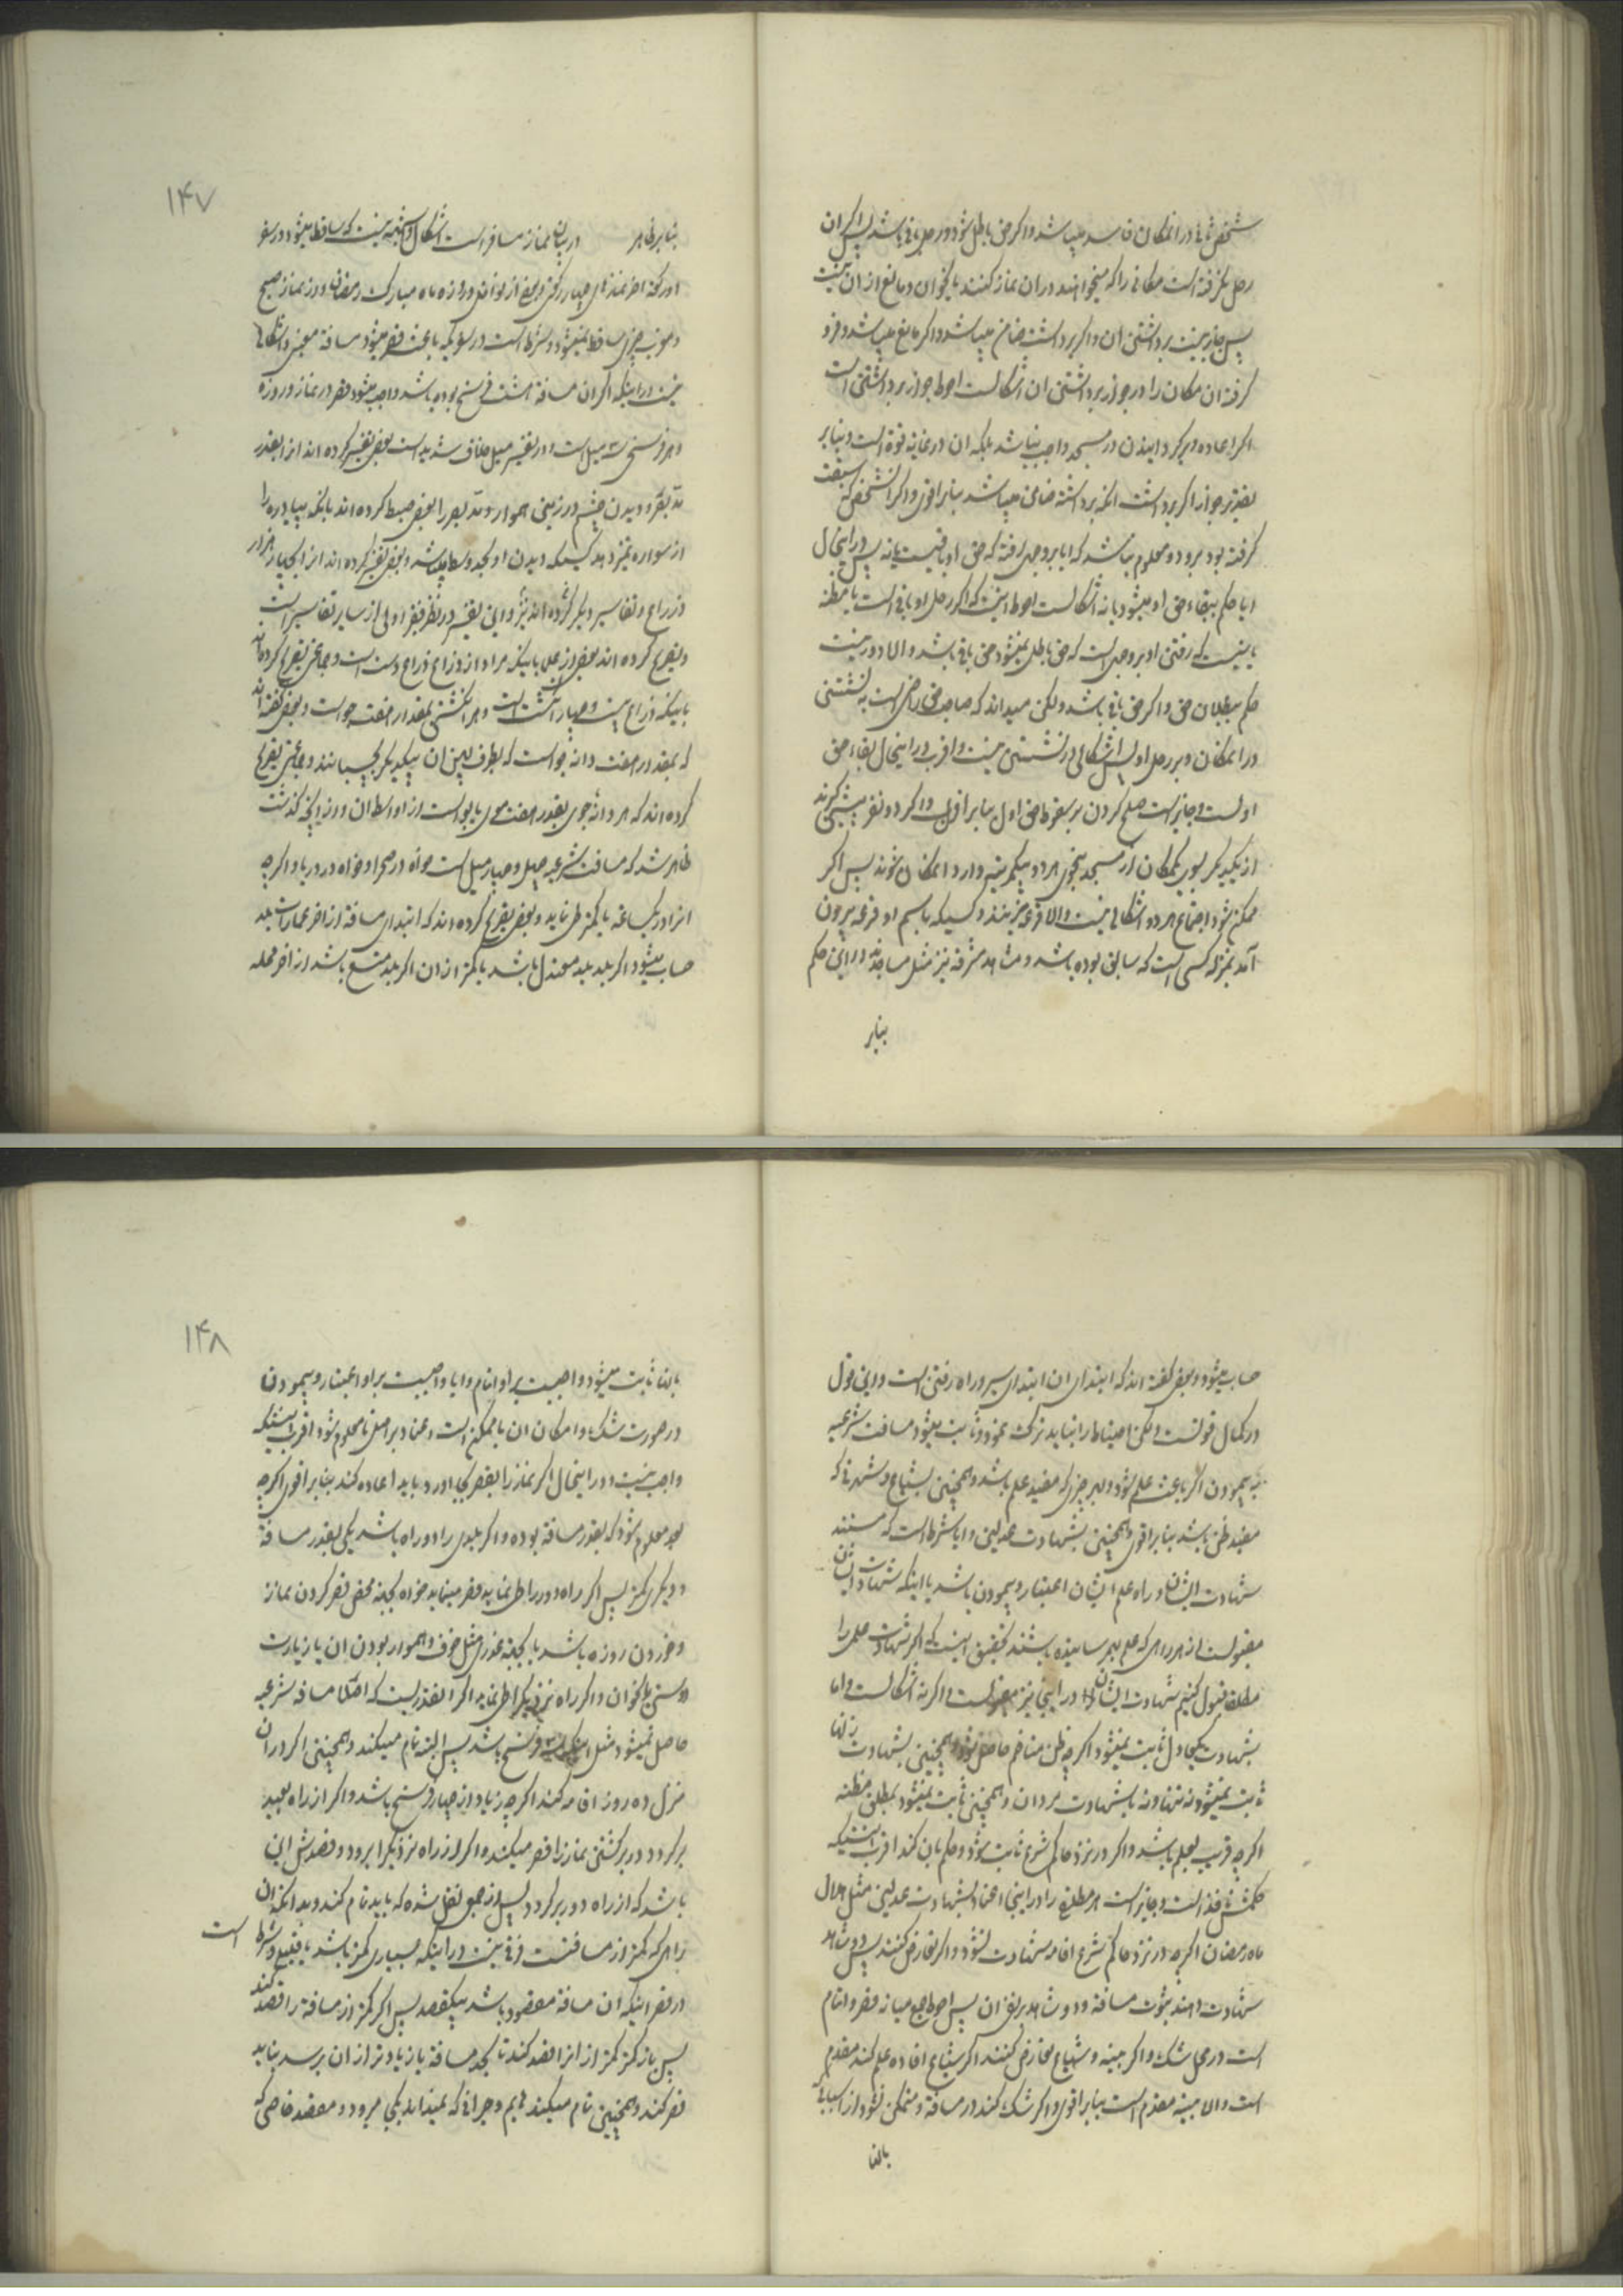 شخص ثانی در انمکان فاسد میباشد و اکر حق باطل شود و رحل باقی باشد پس اکر ان
رحل نکرفته است مکانی را که میخواهند در ان نماز کنند یا بخوان و مانع از ان نیست
پس جایز نیست برداشتن ان و اکر برداشت ضامن میباشد و اکر مانع میباشد و فرو
کرفته ان مکان را در جواز برداشتن ان اشکالست احوط جواز برداشتن است
اکر اعاده و بر کردانیدن در مسجد واجب نباشد بلکه ان در غایة قوة است و بنابر
تقدیر جواز اکر برداشت انکه برداشته ضامن میباشد بنابر اقوی و اکر انشخص که سبقت
کرفته بود برود و معلوم نباشد که ایا بر وجهی رفته که حق او باقیست یا نه پس در اینحال
ایا حکم ببقاء حق او میشود یا نه اشکالست احوط اینست که اکر رحل او باقی است یا مظنه
باینست که رفتن او بر وجهی است که حق باطل نمیشود حق باقی باشد و الا دور نیست
حکم ببطلان حق و اکر حق باقی باشد و لکن میداند که صاحب حق راضی است به نشستن
در انمکان و بر رحل او پس اشکالی در نشستن نیست و اقرب در اینحال بقاء حق
اولست و جایز است صلح کردن بر سقوط حق اول بنابر اقوی و اکر دو نفر پیشی کیرند
از یکدیکر بسوی یکمکان از مسجد بنحوی که هر دو بیکمرتبه وارد انمکان شوند پس اکر
ممکن شود اجتماع هر دو اشکالی نیست و الا قرعه میزنند و کسیکه باسم او قرعه بیرون
آمد بمنزله کسی است که سابق بوده باشد و مشاهد مشرفه نیز مثل مساجدند در این حکم
بنابر
۱۴۷
بنابر ظاهر در بیان نماز مسافر است اشکال و شبهه نیست که ساقط میشود در سفر
دو رکعة اخر نمازهای چهار رکعتی و بعضی از نوافل و روزه ماه مبارک رمضان و از نماز صبح
و مغرب چیزی ساقط نمیشود و شرط است در سفریکه باعث قصر میشود مسافة معینی و اشکالی
نیست در اینکه اکر ان مسافة هشت فرسخ بوده باشد واجب میشود قصر در نماز و روزه
و هر فرسخی سه میل است و در تفسیر میل خلاف شدید است بعضی تفسیر کرده اند انرا بقدر
مد بصر و دیدن چشم در زمینی هموار و مد بصر را بعضی ضبط کرده اند بانکه پیاده را
از سواره تمیز دهد کسیکه دیدن او بحد وسط باشد و بعضی تفسیر کرده اند انرا بچهار هزار
ذراع و تفاسیر دیکر کرده اند نیز و این تفسیر در نظر فقیر اولی از سایر تفاسیر است
و تصریح کرده اند بعضی از علما باینکه مراد از ذراع ذراع دست است و جماعتی تصریح کرده اند
باینکه ذراع بیست و چهار انکشت است و هر انکشتی بمقدار هفت جو است و بعضی کفته اند
که بمقدار هفت دانه جو است که بطرف پهن ان بیکدیکر بچسبانند و جمعی تصریح
کرده اند که هر دانه جوی بقدر هفت موی یابو است از اواسط ان و از انچه کذشت
ظاهر شد که مسافت شرعیه چهل و چهار میل است خواه در صحرا و خواه در دریا و اکر چه
انرا در یکساعة یا کمتر طی نماید و بعضی تصریح کرده اند که ابتدای مسافة از اخر عمارات بلد
حساب میشود اکر بلد بلد معتدل باشد یا کمتر از ان و اکر بلد متسع باشد از اخر محله
حساب میشود و بعضی کفته اند که ابتدای ان ابتدای سیر و راه رفتن است و این قول
در کمال قوتست و لکن احتیاط را نباید ترک نمود و ثابت میشود مسافت شرعیه
به پیمودن اکر باعث علم شود و بهر چیزی که مفید علم باشد و همچنین بشیاع و شهرتی که
مفید ظن باشد بنابر اقوی و همچنین بشهادت عدلین و ایا شرط است که مستند
شهادت ایشان و راه علم ایشان اعتبار و پیمودن باشد یا اینکه شهادت ایشان
مقبولست از هر راهی که علم بهم رسانیده باشند تحقیق اینست که اکر شهادت علمی را
مطلقا قبول کنیم شهادت ایشان در اینجا نیز مقبولست و اکر نه اشکالست و اما
بشهادت یکعادل ثابت نمیشود اکر چه ظن متاخم حاصل شود و همچنین بشهادت زنان
ثابت نمیشود نه تنها و نه با شهادت مردان و همچنین ثابت نمیشود بمطلق مظنه
اکر چه قریب بعلم باشد و اکر در نزد حاکم شرع ثابت شود و حکم بان کند اقرب اینستکه
حکمش نافذ است و جایز است هر مطلع را در اینجا اعتماد بشهادت عدلین مثل هلال
ماه رمضان اکر چه در نزد حاکم شرع اقامه شهادت نشود و اکر تعارض کنند پس دو شاهد
شهادت دهند بثبوت مسافة و دو شاهد بر نفی ان پس احوط جمع میانه قصر و اتمام
است در محل شک و اکر بینه و شیاع تعارض کنند اکر شیاع افاده علم کند مقدم
است و الا بینه مقدم است بنابر اقوی و اکر شک کند در مسافة و متمکن نشود از اسبابی که
بانها
۱۴۸
بانها ثابت میشود واجبست بر او اتمام و ایا واجبست بر او اعتبار و پیمودن
در صورت شک و امکان ان یا ممکن است اعتماد بر اصل تا معلوم شود اقرب اینستکه
واجب نیست و در اینحال اکر نماز را بقصر بجای اورد باید اعاده کند بنابر اقوی اکر چه
بعد معلوم شود که بقدر مسافة بوده و اکر بلدی را دو راه باشد یکی بقدر مسافة
و دیکری کمتر پس اکر راه دور را طی نماید قصر مینماید خواه بجهة محض قصر کردن نماز
و خوردن روزه باشد یا بجهة عذری مثل خوف و هموار بودن ان یا زیارت
دوستی یا بخوان و اکر راه نزدیک را طی نماید اکر انقدریست که اصلا مسافه شرعیه
حاصل نمیشود مثل اینکه سه فرسخ باشد پس البته تمام میکند و همچنین اکر در ان
منزل ده روز اقامه کند اکر چه زیاد از چهار فرسخ باشد و اکر از راه بعید
برکردد در برکشتن نماز را قصر میکند و اکر از راه نزدیک برود و قصدش این
باشد که از راه دور برکردد پس از جمعی نقل شده که باید تمام کند و بدانکه ان
راهی که کمتر از مسافتست فرقی نیست در اینکه بسیاری کمتر باشد یا قلیلی و شرط است
در قصر اینکه ان مسافة مقصود باشد بیکقصد پس اکر کمتر از مسافة را قصد کند
پس باز کمتر کمتر از انرا قصد کند تا بحد مسافة یا زیادتر از ان برسد نباید
قصر کند و همچنین تمام میکند هایم و حیرانی که نمیداند بکجا میرود و مقصد خاصی که